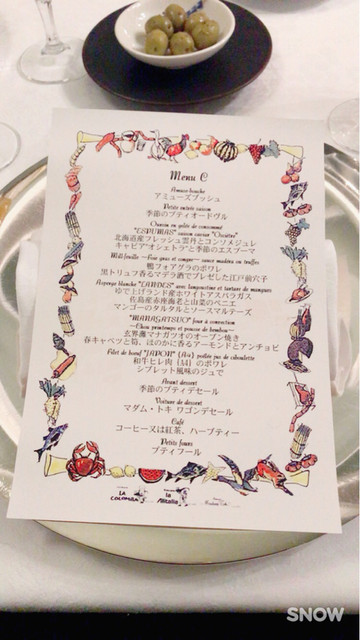 Menu C
Amuse bouche
アミューズブッシュ
Petite entrée saison
季節のプティオードヴル
Oursin en gelée de consommé
"ESPUMAS" saison caviar "Osciètre"
北海道産フレッシュ雲丹とコンソメジュレ
キャビア"オシェトラ"と季節のエスプーマ
Mill-feuille
鴨フォアグラのポワレ
黒トリュフ香るマデラ酒でブレゼした江戸前穴子
Asperge blanche "LANDES" avec langoustine et tartare de mangues
ゆで上げランド産ホワイトアスパラガス
佐島産赤座海老と山菜のベニエ
マンゴーのタルタルとソースマルテーズ
"MANAGATSUO" four à convection
—Chou printemps et pousse de bambou—
玄界灘マナガツオのオーブン焼き
春キャベツと筍、ほのかに香るアーモンドとアンチョビ
Filet de bœuf "JAPON" (A4) poêlée jus de ciboulette
和牛ヒレ肉（A4）のポワレ
シブレット風味のジュで
Avant dessert
季節のプティデセール
Voiture de dessert
マダム・トキ ワゴンデセール
Cafe
コーヒー又は紅茶、ハーブティー
Petits fours
プティフール
LA COLOMBA
la Alitalia
SNOW